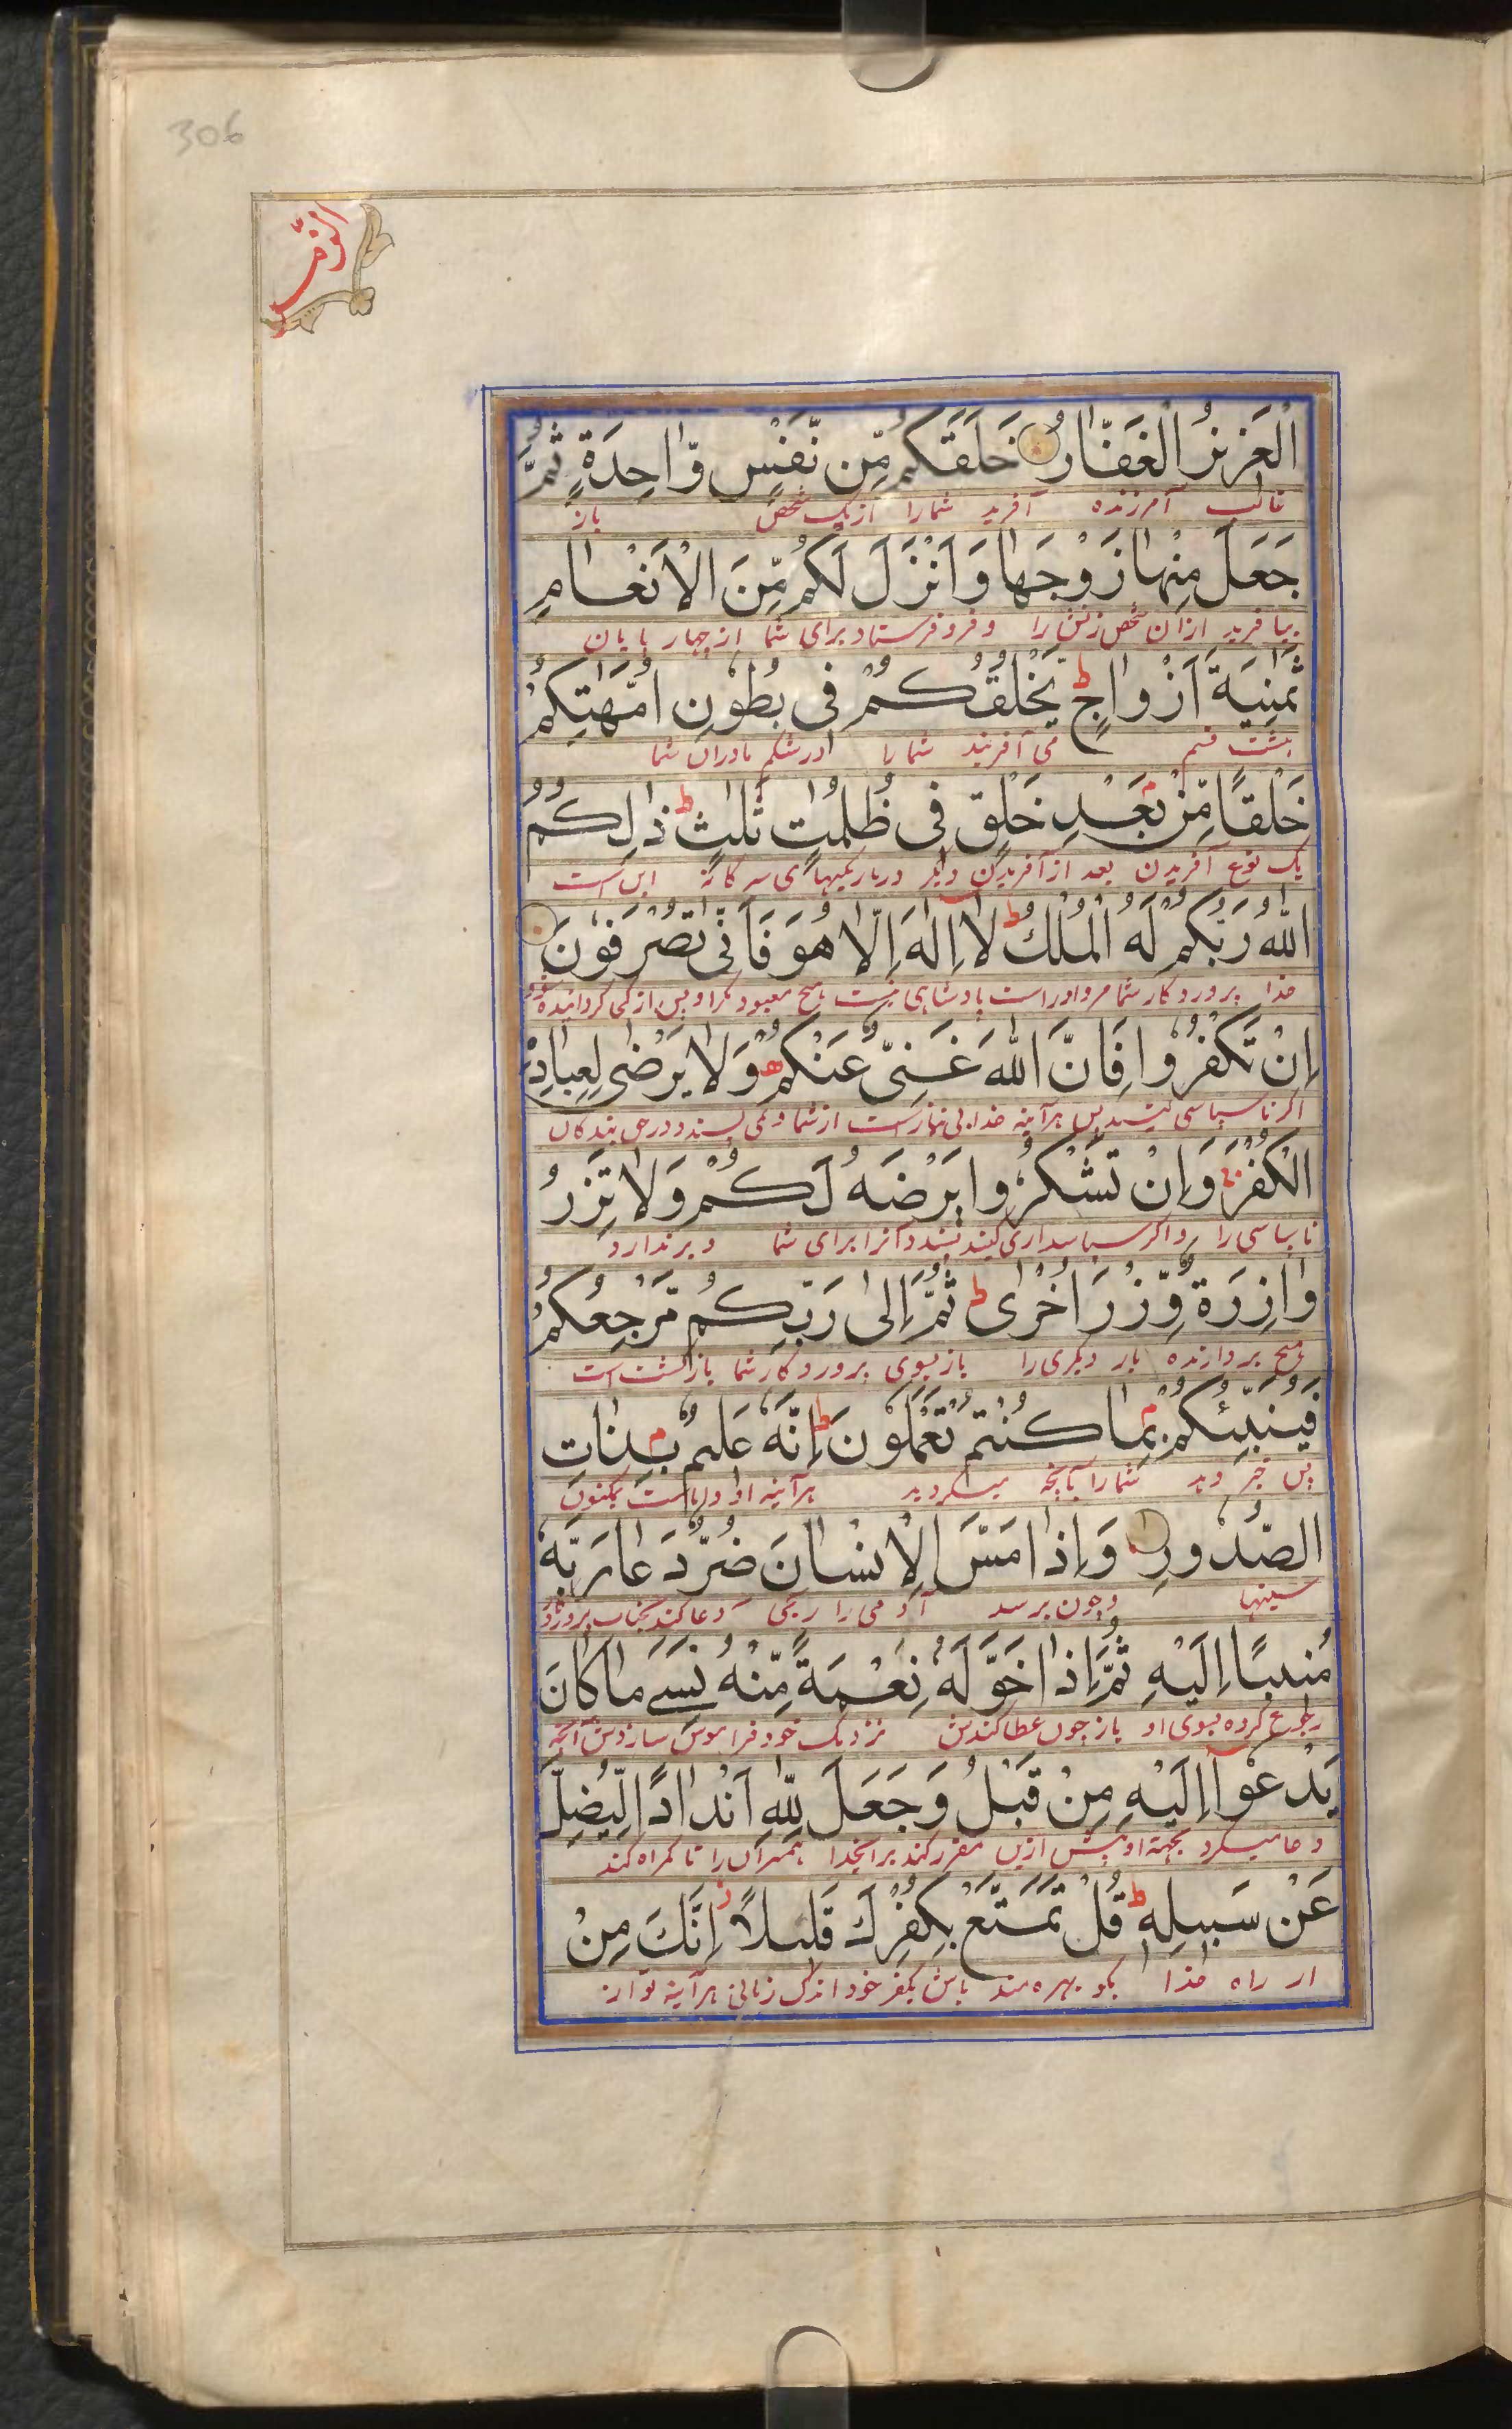 306
الزمر
الْعَزِيزُ الْغَفَّارُ خَلَقَكُم مِّن نَّفْسٍ وَّاحِدَةٍ ثُمَّ
غالب آمرزنده آفرید شمارا از یک شخص باز
جَعَلَ مِنْهَا زَوْجَهَا وَاَنْزَلَ لَكُم مِّنَ الْاَنْعَامِ
بیافرید ازان شخص زنش را و فرو فرستاد برای شما از چهار پایان
ثَمٰنِيَةَ اَزْوَاجٍ ط يَخْلُقُكُمْ فِى بُطُونِ اُمَّهٰتِكُمْ
هشت قسم می آفریند شمارا در شکم مادران شما
خَلْقًا مِّنْ بَعْدِ خَلْقٍ فِى ظُلُمٰتٍ ثَلٰثٍ ط ذٰلِكُمُ
یک نوع آفریدن بعد از آفریدن دیگر در تاریکیهای سه گانه این است
اللّٰهُ رَبُّكُمْ لَهُ الْمُلْكُ ط لَا اِلٰهَ اِلَّا هُوَ فَاَنّٰى تُصْرَفُونَ
خدا پروردگار شما مر اوراست پادشاهی نیست هیچ معبود مگر او پس از کجا گردانیده
اِنْ تَكْفُرُوا فَاِنَّ اللّٰهَ غَنِىٌّ عَنْكُمْ وَلَا يَرْضٰى لِعِبَادِهِ
اگر ناسپاسی کنید پس هرآینه خدا بی نیاز است از شما و نمی پسندد در حق بندگان
الْكُفْرَ وَاِنْ تَشْكُرُوا يَرْضَهُ لَكُمْ وَلَا تَزِرُ
ناسپاسی را و اگر سپاسداری کنید پسندد آنرا برای شما و بر ندارد
وَازِرَةٌ وِّزْرَ اُخْرٰى ط ثُمَّ اِلٰى رَبِّكُم مَّرْجِعُكُمْ
هیچ بردارنده بار دیگری را باز بسوی پروردگار شما بازگشت است
فَيُنَبِّئُكُمْ بِمَا كُنْتُمْ تَعْمَلُونَ ط اِنَّهُ عَلِيمٌ بِذَاتِ
پس خبر دهد شمارا بآنچه میکردید هرآینه او داناست بمکنون
الصُّدُورِ وَاِذَا مَسَّ الْاِنْسَانَ ضُرٌّ دَعَا رَبَّهُ
سینها و چون برسد آدمی را رنجی دعا کند بجناب پروردگار
مُنِيبًا اِلَيْهِ ثُمَّ اِذَا خَوَّلَهُ نِعْمَةً مِّنْهُ نَسِىَ مَا كَانَ
رجوع کرده بسوی او باز چون عطا کندش نزدیک خود فراموش سازد
يَدْعُوا اِلَيْهِ مِنْ قَبْلُ وَجَعَلَ لِلّٰهِ اَنْدَادًا لِّيُضِلَّ
دعا میکرد بجهة او پیش ازین مقرر کند برای خدا همسران را تا گمراه کند
عَنْ سَبِيلِهِ ط قُلْ تَمَتَّعْ بِكُفْرِكَ قَلِيلًا اِنَّكَ مِنْ
از راه خدا بگو بهره مند باش بکفر خود اندک زمانی هرآینه تو از